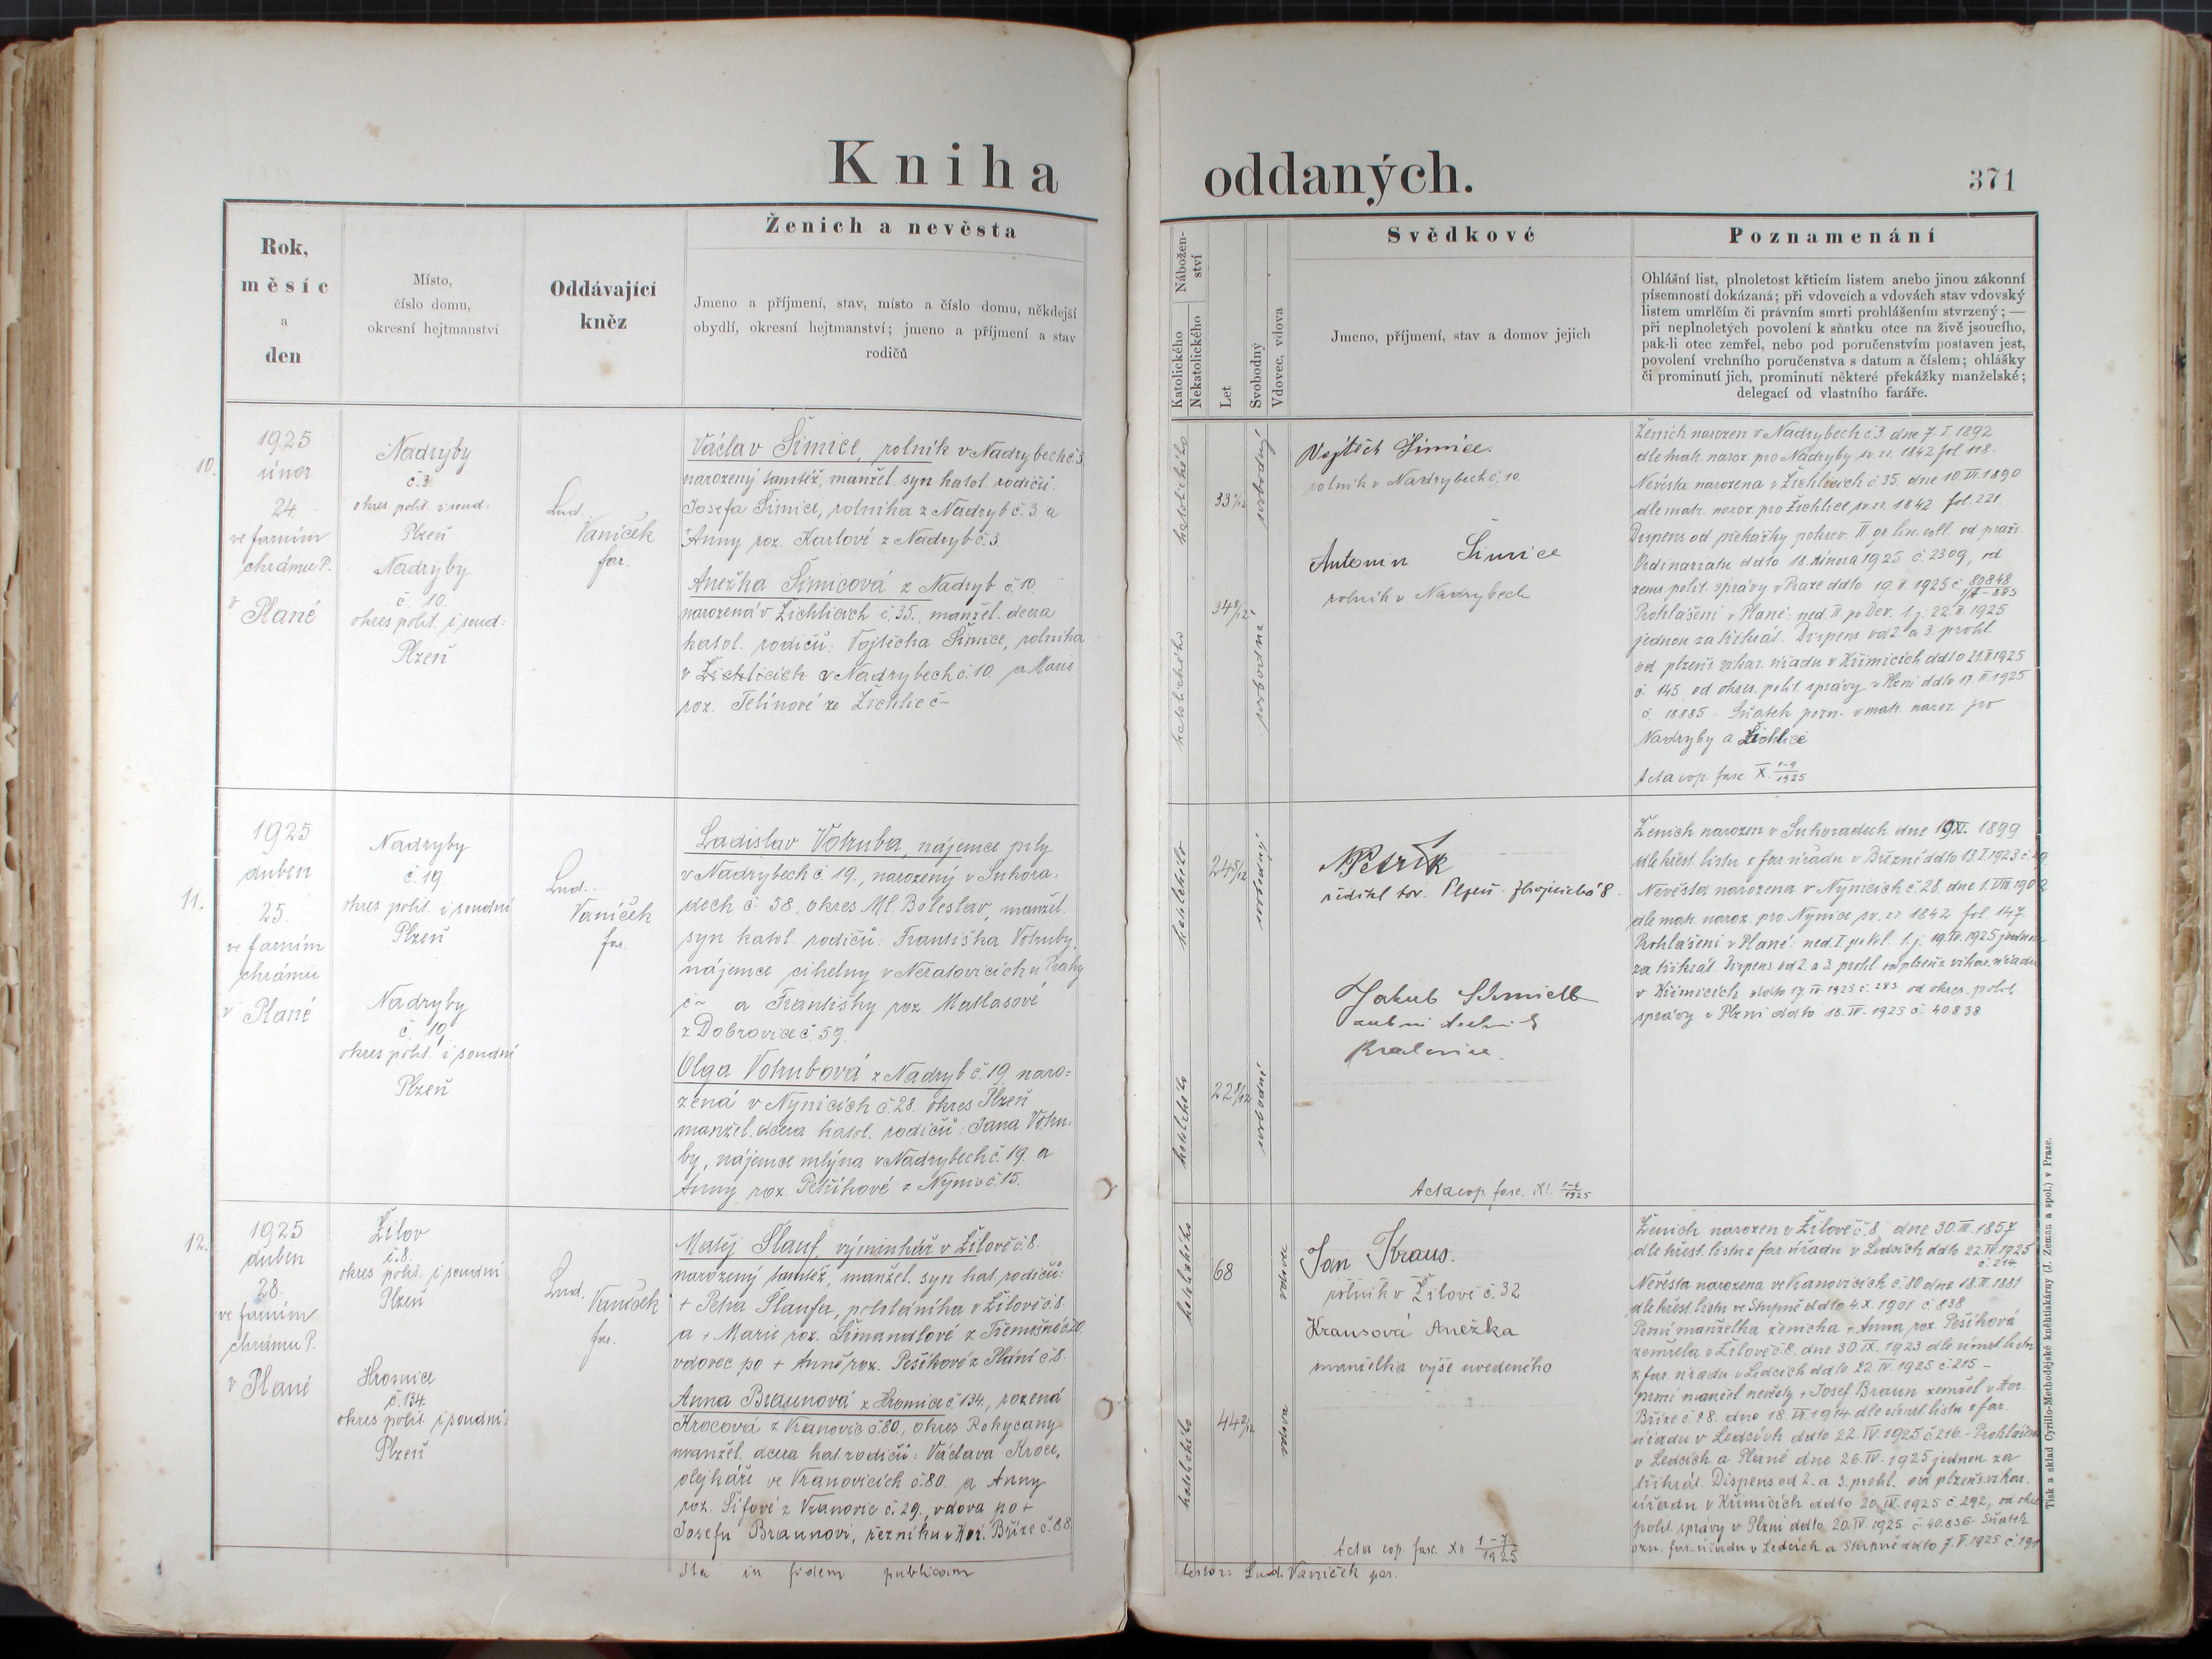 Kniha oddaných.
371
Rok,
měsíc
a
den
Místo,
číslo domu,
okresní hejtmanství
Oddávající
kněz
Ženich a nevěsta
Jmeno a příjmení, stav, místo a číslo domu, někdejší
obydlí, okresní hejtmanství; jmeno a příjmení a stav
rodičů
Nábožen-
ství
Katolického
Nekatolického
Let
Svobodný
Vdovec, vdova
Svědkové
Jmeno, příjmení, stav a domov jejich
Poznamenání
Ohlášní list, plnoletost křticím listem anebo jinou zákonní
písemností dokázaná; při vdovcích a vdovách stav vdovský
listem umrlčím či právním smrti prohlášením stvrzený; —
při neplnoletých povolení k sňatku otce na živě jsoucího,
pak-li otec zemřel, nebo pod poručenstvím postaven jest,
povolení vrchního poručenstva s datum a číslem; ohlášky
či prominutí jich, prominutí některé překážky manželské;
delegací od vlastního faráře.
10.
1925
únor
24.
ve farním
chrámu P.
v Plané
Nadryby
č. 3.
okres polit. i soud.
Plzeň
Nadryby
č. 10.
okres polit. i soud:
Plzeň
Lud.
Vaníček
far.
Václav Šimice, rolník v Nadrybech č. 3
narozený tamtéž, manžel. syn katol. rodičů:
Josefa Šimice, rolníka z Nadryb č. 3 a
Anny roz. Karlové z Nadryb č. 3
Anežka Šimicová z Nadryb č. 10
narozená v Žichlicích č. 35., manžel. dcera
katol. rodičů: Vojtěcha Šimice, rolníka
v Žichlicích v Nadrybech č. 10. a Marie
roz. Telínové ze Žichlic č ~
katolického
33 1/12
svobodný
katolického
34 8/12
svobodná
Vojtěch Šimice.
rolník v Nadrybech č. 10.
Antonín Šimice
rolník v Nadrybech
Ženich narozen v Nadrybech č. 3. dne 7. I. 1892
dle matr. naroz. pro Nadryby sv. rr. 1842 fol 118.
Nevěsta narozena v Žichlicích č. 35. dne 10. VI. 1890
dle matr. naroz. pro Žichlice sv. rr. 1842 fol. 221.
Dispens od překážky pokrev. II. gr. lin. coll. od praž.
Ordinariatu ddto 18. února 1925 č. 2309, od
zems. polit. správy v Praze ddto 19. II. 1925 č. 80848
Prohlášeni v Plané: ned. II. po Dev. t. j. 22. II. 1925
jednou za třikrát. Dispens od 2. a 3. prohl.
od plzeňs. vikar. úřadu v Křimicích ddto 21. II. 1925
č. 145 od okres. polit. správy v Plzni ddto 17. II. 1925
č. 18885. Sňatek pozn. v matr. naroz. pro
Nadryby a Žichlice
Acta cop. fasc. X. 1-9/1925
11.
1925
duben
25.
ve farním
chrámu
v Plané
Nadryby
č. 19.
okres polit. i soudní
Plzeň
Nadryby
č. 19.
okres polit. i soudní
Plzeň
Lud.
Vaníček
far.
Ladislav Votruba, nájemce pily
v Nadrybech č. 19., narozený v Suhora=
dech č. 58, okres Ml. Boleslav, manžel.
syn katol. rodičů: Františka Votruby,
nájemce cihelny v Neratovicích u Prahy
č ~ a Františky roz. Matlasové
z Dobrovice č. 59.
Olga Votrubová z Nadryb č. 19. naro=
zená v Nynicích č. 28. okres Plzeň
manžel. dcera katol. rodičů: Jana Votru=
by, nájemce mlýna v Nadrybech č. 19. a
Anny roz. Petříkové z Nynic č. 15.
katolického
24 5/12
svobodný
katolického
22 8/12
svobodná
Petřík
ředitel tov. Plzeň
Jakub
Acta cop. fasc. XI. 1-6/1925
Ženich narozen v Suhoradech dne 19. XI. 1899
dle křest. listu z far. úřadu v Březně ddto 13. I. 1923 č. 19.
Nevěsta narozena v Nynicích č. 28 dne 1. VIII. 1902
dle matr. naroz. pro Nynice sv. rr. 1842 fol. 147.
Prohlášeni v Plané: ned. I. po Vel. t. j. 19. IV. 1925 jednou
za třikrát. Dispens od 2. a 3. prohl. od plzeňs. vikar. úřadu
v Křimicích ddto 17. IV. 1925 č. 283 od okres. polit.
správy v Plzni ddto 18. IV. 1925 č. 40838
12.
1925
duben
28.
ve farním
chrámu P.
v Plané
Žilov
č. 8.
okres polit. i soudní
Plzeň
Hromice
č. 134.
okres polit. i soudní:
Plzeň
Lud.
Vaníček
far.
Matěj Šlauf, výminkář v Žilově č. 8.
narozený tamtéž, manžel. syn kat. rodičů:
+ Petra Šlaufa, pololáníka v Žilově č. 8.
a + Marie roz. Šimandlové z Třemošné č. 20.
vdovec po + Anně roz. Pešíkové z Plání č. 8.
Anna Braunová z Hromic č. 134., rozená
Krocová z Vranovic č. 80., okres Rokycany
manžel. dcera kat. rodičů: Václava Kroce,
olejkáře ve Vranovicích č. 80. a Anny
roz. Šifové z Vranovic č. 29., vdova po +
Josefu Braunovi, řezníku v Hor. Bříze č. 88.
katolického
68
vdovec
katolického
44 2/12
vdova
Jan Kraus.
rolník v Žilově č. 32
Krausová Anežka
manželka výše uvedeného
Acta cop. fasc. XII 1-7/1925
Ženich narozen v Žilově č. 8. dne 30. III. 1857
dle křest. listu z far. úřadu v Ledcích ddto 22. IV. 1925
č. 214.
Nevěsta narozena ve Vranovicích č. 80 dne 18. II. 1881
dle křest. listu ve Stupně ddto 4. X. 1901 č. 838
První manželka ženicha + Anna roz. Pešíková
zemřela v Žilově č. 8. dne 30. IX. 1923 dle úmrt. listu
z far. úřadu v Ledcích ddto 22. IV. 1925 č. 215 -
první manžel nevěsty + Josef Braun zemřel v Hor.
Bříze č. 88. dne 18. IX. 1914 dle úmrt. listu z far.
úřadu v Ledcích ddto 22. IV. 1925 č. 216. - Prohlášeni
v Ledcích a Plané dne 26. IV. 1925 jednou za
třikrát. Dispens od 2. a 3. prohl. od plzeňs. vikar.
úřadu v Křimicích ddto 20. IV. 1925 č. 292, od okr.
polit. správy v Plzni ddto 20. IV. 1925 č. 40.836 - Sňatek
ozn. far. úřadu v Ledcích a Stupně ddto 7. V. 1925 č. 191
Ita in fidem publicam
testor: Lud. Vaníček par.
Tisk a sklad Cyrillo-Methodějské knihtiskárny (J. Zeman a spol.) v Praze.